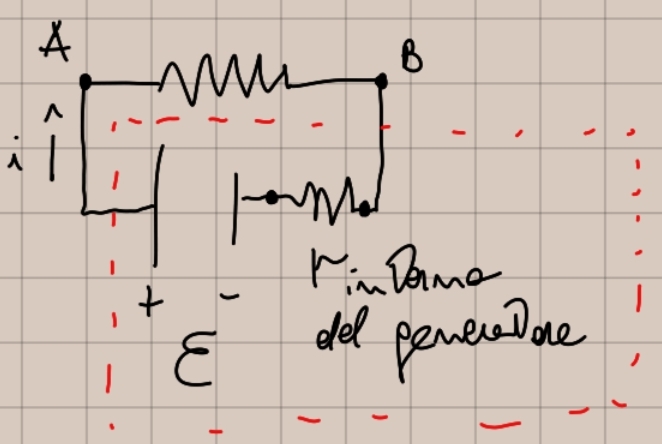 A
B
i
r interna
+ -
del generatore
ε